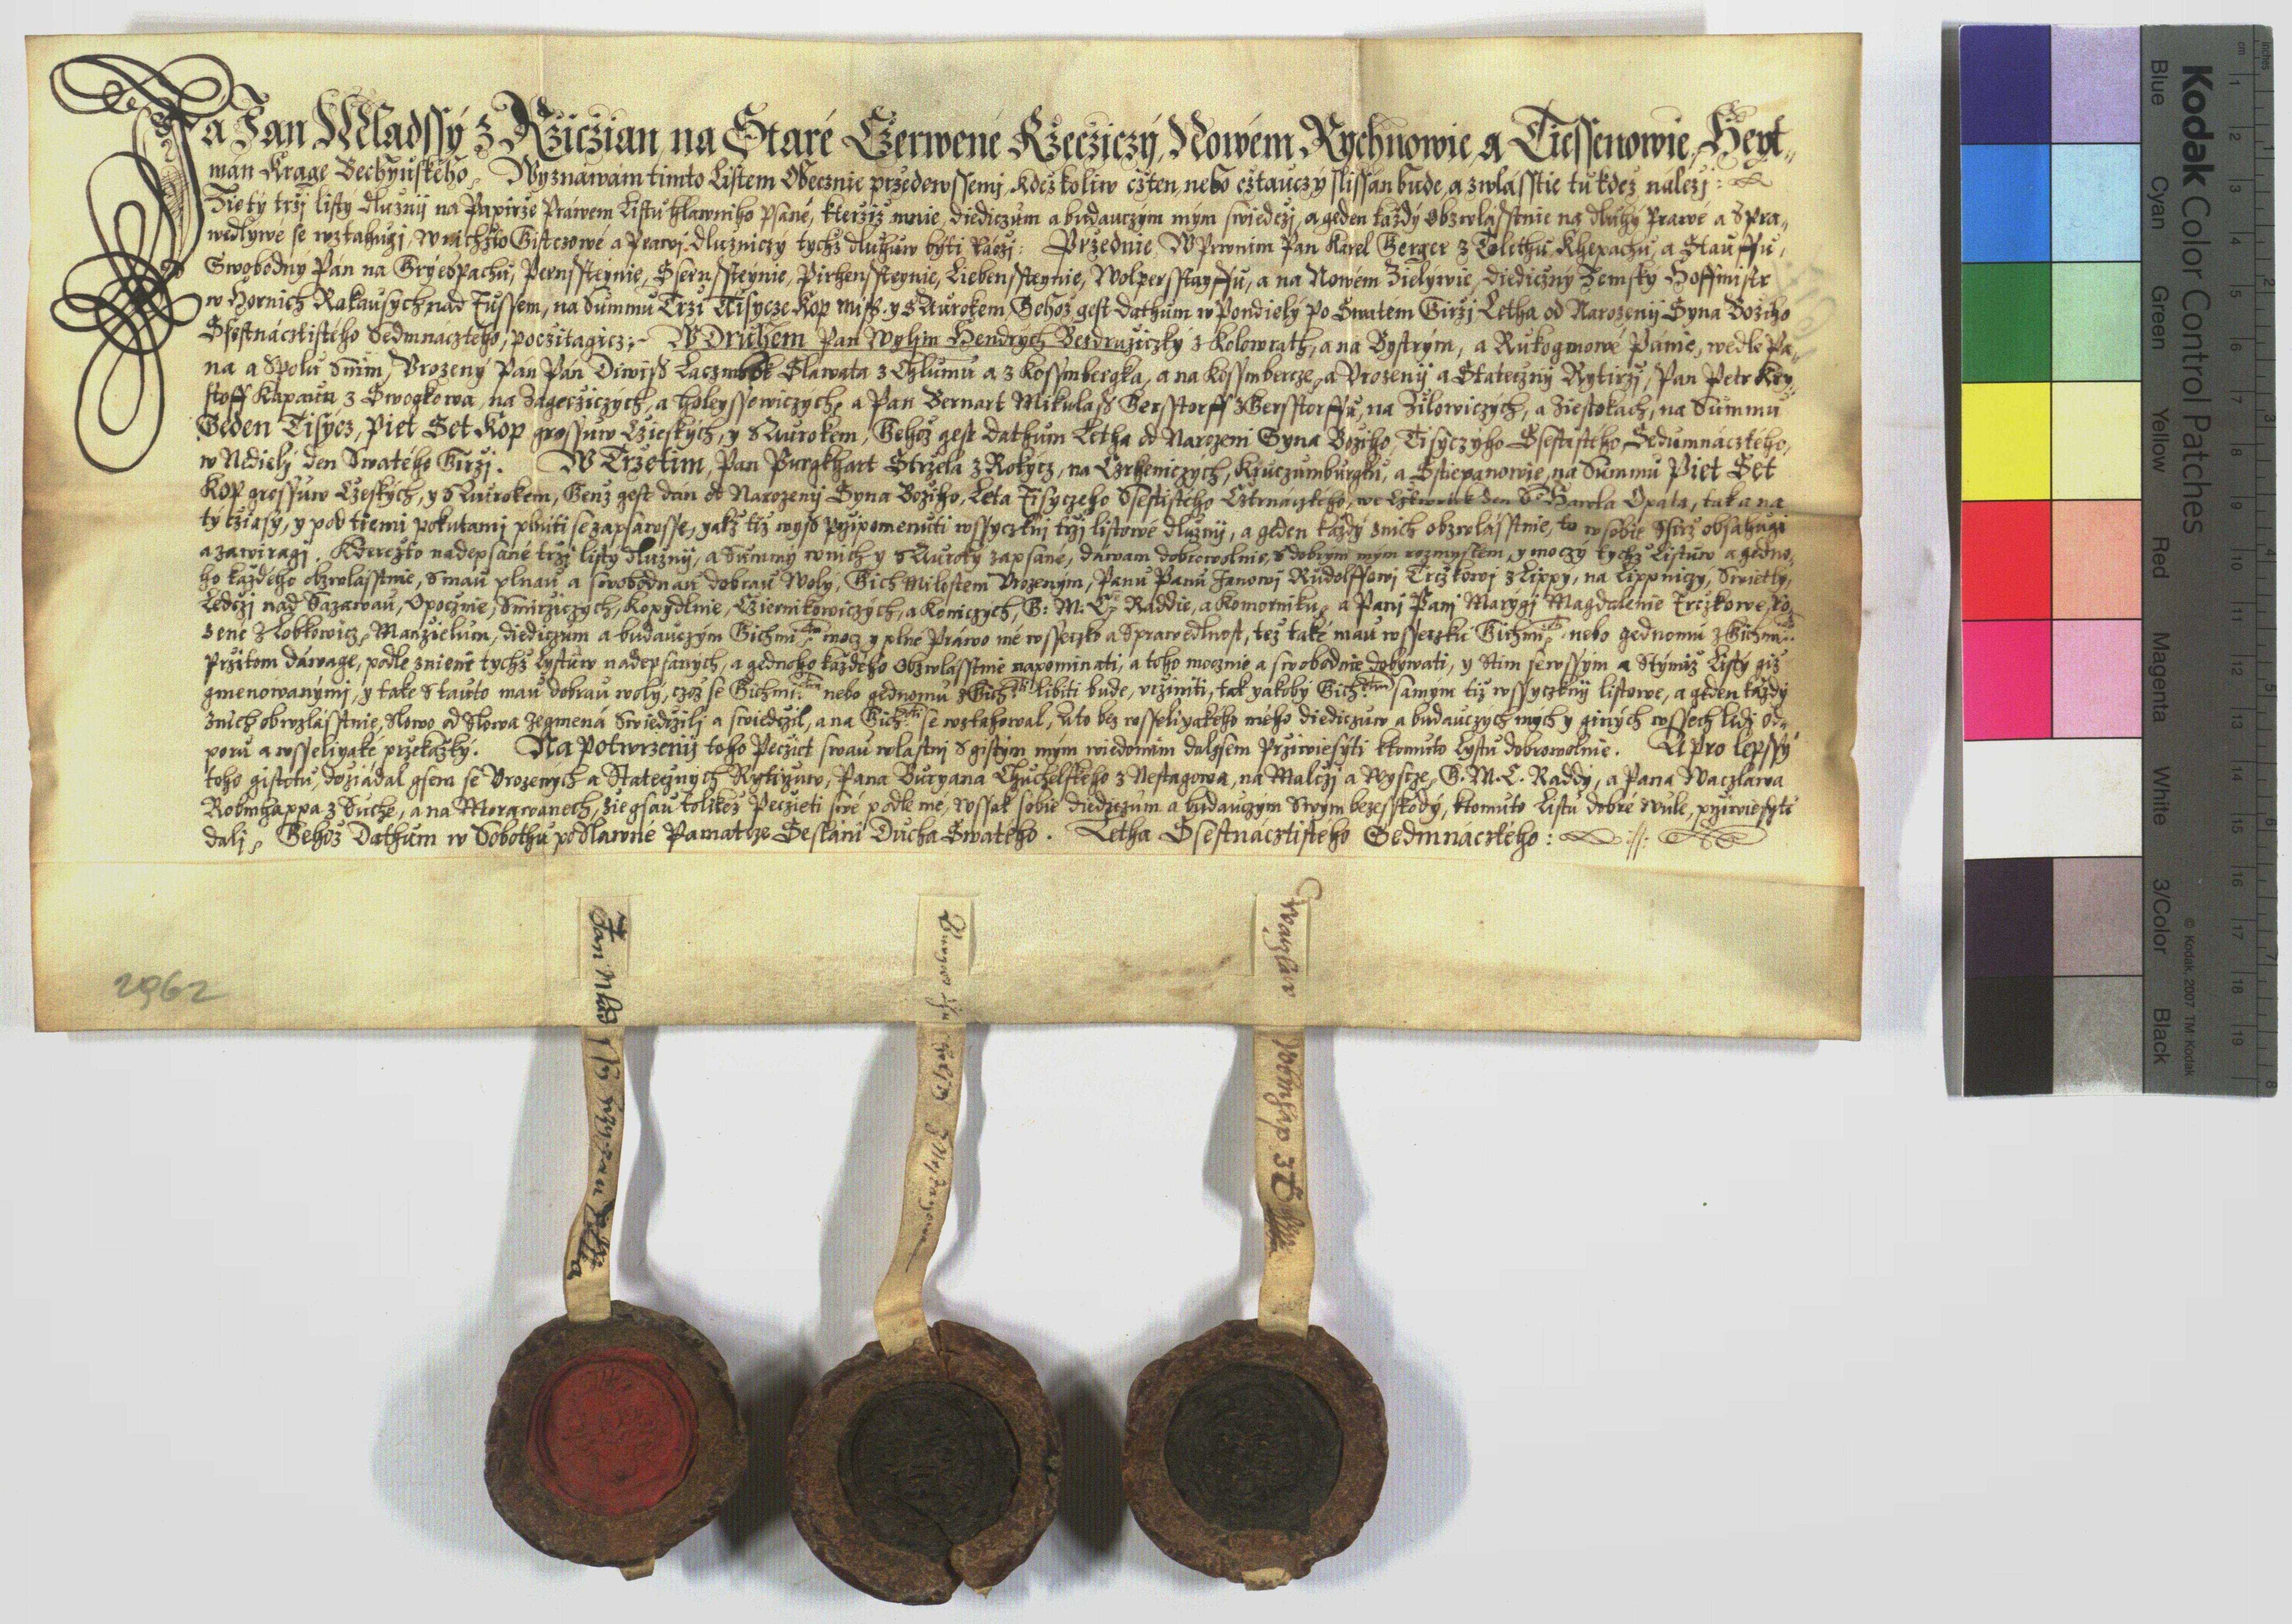 Ja Jan Mladssý z Rziczian na Staré Czerwené Rzecziczý, Nowém Rychnowie a Tiessenowie, Heyt-
man Krage Bechýnského, Wyznawám timto Listem Obecznie przedewssemi, kdez koliw czten nebo cztauczý slissan bude, a zwlásstie tu kdez nalezj:
Ziety trzj listý dluznij na Papirze Práwem Listu hlawniho psané, kterziz mnie, diediczum a budauczým mým swiedczj, a geden každý obzwlásstnie na dluhý Prawé a Spra-
wedlywe se wztahugj, w nichzto Gistczowé a Prawj Dluzniczý tychz dluhuw býti raczj: Przednie W Prwnim Pan Karel Gerger z Tolethu, Khepachu, a Stauffu,
Swobodný Pán na Grýespachu, Pernssteýnie, Ssernssteýnie, Pirhenssteýnie, Liebenssteýnie, Wolpersstayffu, a na Nowém Zielýwie, diediczný Zemský Hoffmistr
w Horních Rakausých nad Enssem, na Summu Trzi Tisýcze Kop miss. y s Aurokem, Gehoz gest Dathum w Pondielý po Swatém Girzj Letha od Narozenij Syna Božího
Ssestnácztistého Sedmnácztého, poczitagicz: W Druhém Pan Wylim Hendrých Bezdruziczký z Kolowrath, a na Bystrým, a Rukogmowé Panie, wedle Pa-
na a Spolu Snim, Vrozený Pán Pan Diwiss Laczmbok Slawata z Chlumu a z Kossmbergka, a na Kossmbercze, a Vrozenij a Statecznij Rytirzj, Pan Petr Kry-
stoff Kapaun z Swogkowa, na Zageczicých, a Holeyssowiczých, a Pan Bernart Mikulass Gersstorff z Gersstorffu, na Zilowiczých, a Ziestokach, na Summu
Geden Tisýcz, Piet Set Kop grossuw Czieských, y s Aurokem, Gehoz gest Dathum Letha od Narozeni Syna Božího, Tisyczýho Ssestistého Sedumnácztého,
w Nedielj den Swatého Girzj. W Trzetim, Pan Purgkhart Strzela z Rokýcz, na Czrhenicých, Kýuczumburgku, a Sstiepanowie, na Summu Piet Set
Kop grossuw Czeských, y s Aurokem, Genz gest dán od Narozenij Syna Božího, Leta Tisyczeho Ssestistého Cztrnacztého, we Cztwrtek den S° Hawla Opata, tak a na
tý cziasý, y pod tiemi pokutami plniti se zapsawsse, yakz tiz wýss przipomenutj wssyczknj trzj listowé dluznij, a geden každý znich obzwlásstnie, to w sobie ssirz obsahugi
a zawiragi. Kderezto nadepsané trzj listý dluznij, a Summý wnich y s Auroky zapsané, dáwam dobrowolnie, s dobrým mým rozmyslem, y moczý tychz Listuw a gedno-
ho každého obzwlásstnie, Smau plnau a swobodnau dobrau Wolý, Gich Milostem Vrozeným, Panu Panu Janowj Rudolffowj Trczkowj z Lippy, na Lippniczý, Swietlý,
Ledczj nad Sazawau, Opocznie, Smirziczých, Kopýdlnie, Cziernikowiczých, a Koniczých, G: M: C: Raddie, a Komorniku, a Panj Panj Marýgj Magdalenie Trczkowe, ro-
zene z Lobkowicz, Manzieluom, diediczum a budauczým Gichmi. mocz y plné Prawo mé wsseczko a Sprawedlnost, též také mau wsseczku Gichmi. nebo gednomu z Gichmi.
przitom dáwage, podle zniení tychz Lystuw nadepsaných, a gednoho každého obzwlásstnie napominati, a toho mocznie a swobodnie dobýwati, y Stim se wssým a Stýmiz Listý giz
gmenowanými, y take Stauto mau dobrau wolý, czoz se Gichmi. nebo gednomu z Gich. libiti bude, vcziniti, tak yakobý Gich. samým tiz wssyczknij listowe, a geden každý
znich obzwlásstnie, Slowo od Slowa Zegmená Swiedczilj a swiedczil, a na Gich. se wztahowal, Ato bez wsseliyakého mého diediczuw a budauczých mých y giných wssech lidj od-
poru a wsseliyaké przekážký. Na Potwrzenij toho Peczict swau wlastnj S gistým mým wiedomim dalgsem Przwiesýti ktomuto Lystu dobrowolnie. A pro lepssý
toho gistotu, dožiádal gsem se Vrozených a Statecznych Rytirzuw, Pana Buryana Chuchelského z Nestagowa, na Malczj a Wysoze, G. M. C. Raddý, a Pana Waczlawa
Robmhappa z Suché, a na Morawanech, Ziegsau tolikéz Peczieti swé podle mé, wssak sobie diediczum a budauczým Swým bezesskodý, ktomuto Listu dobré wule, przwiesyti
dalj, Gehoz Dathum w Sobothu po Slawné Pamatcze Seslání Ducha Swatého. Letha Ssestnácztistého Sedmnácztého:
2962
Jan Mladssý z Rzyczan
Buryan Chuchelský z Nestagowa
Waczlaw Robmhap z Suche
Kodak Color Control Patches
© Kodak, 2007 TM: Kodak
Blue Cyan Green Yellow Red Magenta White 3/Color Black
inches 1 2 3 4 5 6 7 8
cm 1 2 3 4 5 6 7 8 9 10 11 12 13 14 15 16 17 18 19